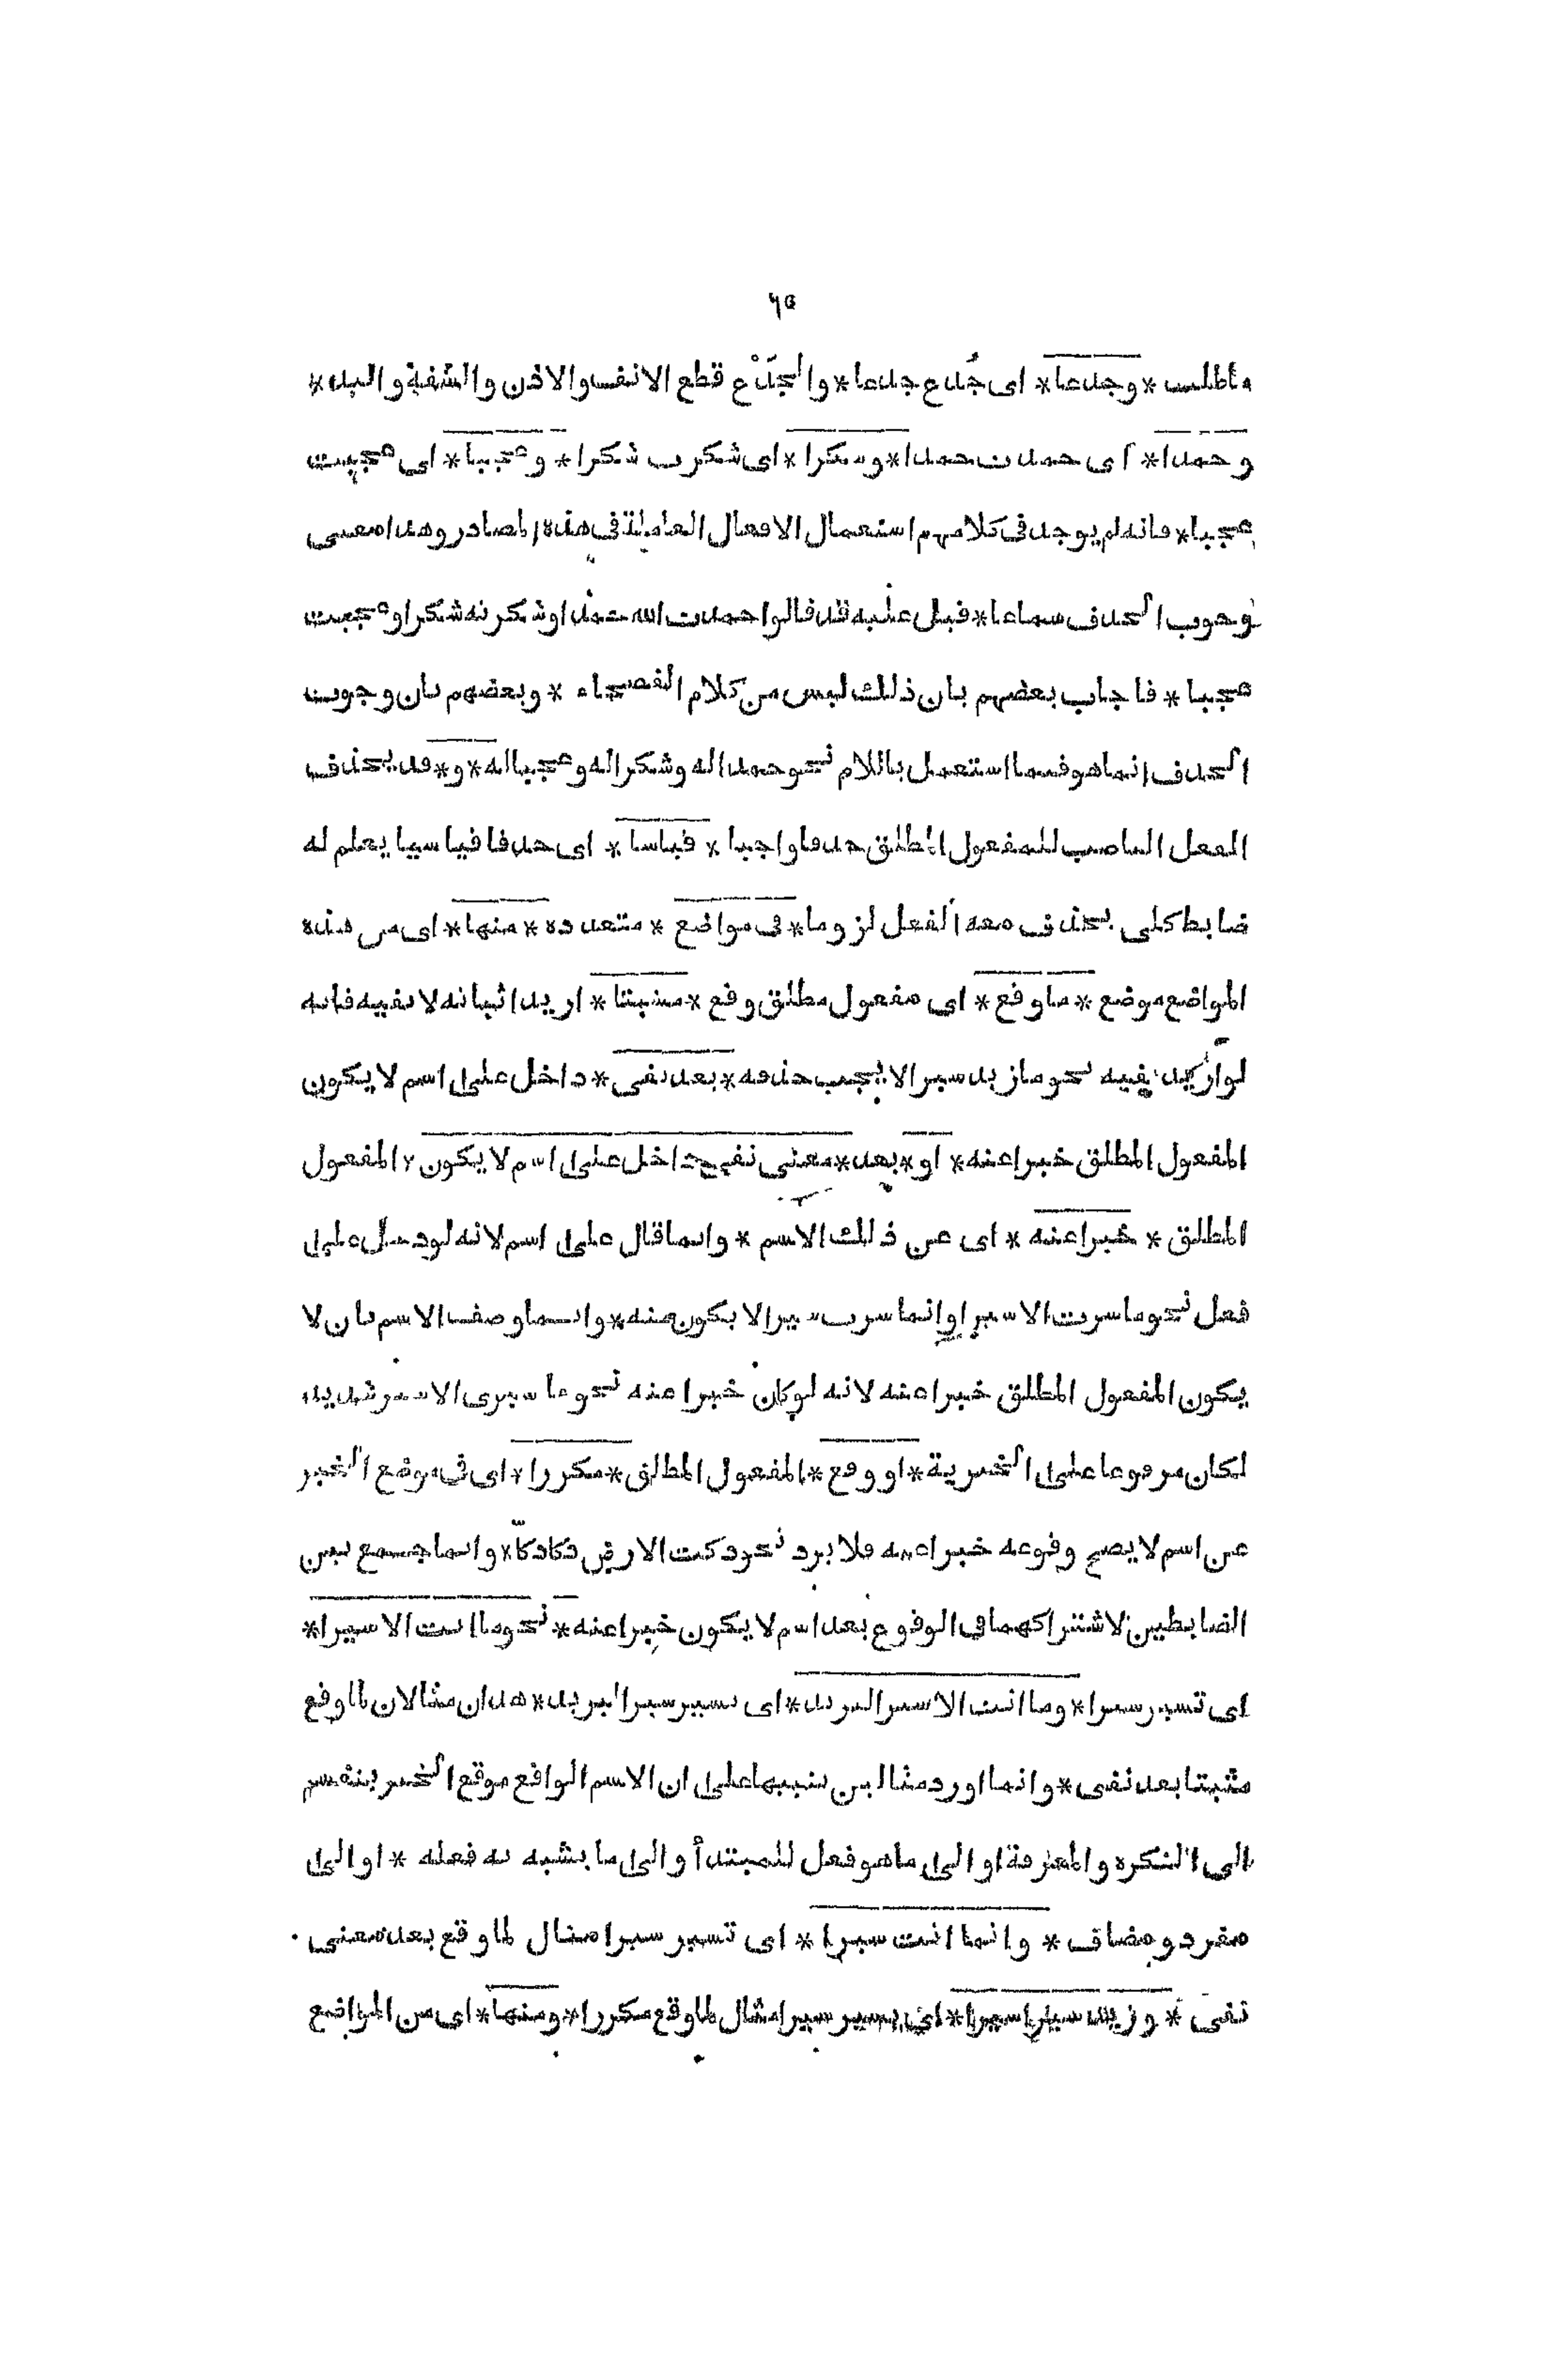 ٦٥
ما طلب * وجدعا * اى جُدع جدعا * والجَدْع قطع الانف والاذن والشفة واليد *
وحمدا * اى حمدت حمدا * وشكرا * اى شكرت شكرا * وعجبا * اى عجبت
عجبا * فانه لم يوجد فى كلامهم استعمال الافعال العاملة فى هذه المصادر وهذا معنى
وجوب الحذف سماعا * قيل عليه قد قالوا حمدت الله حمدا وشكرته شكرا وعجبت
عجبا * فاجاب بعضهم بان ذلك ليس من كلام الفصحاء * وبعضهم بان وجوب
الحذف انما هو فيما استعمل باللام نحو حمدا له وشكرا له وعجبا له * و * قد يحذف
الفعل الناصب للمفعول المطلق حذفا واجبا * قياسا * اى حذفا قياسيا يعلم له
ضابط كلى يحذف معه الفعل لزوما * فى مواضع * متعدده * منها * اى من هذه
المواضع موضع * ما وقع * اى مفعول مطلق وقع * مثبتا * اريد اثباته لا نفيه فانه
لو اريد نفيه نحو ما زيد سيرا لا يجب حذفه * بعد نفى * داخل على اسم لا يكون
المفعول المطلق خبرا عنه * او * بعد * معنى نفى داخل على اسم لا يكون * المفعول
المطلق * خبرا عنه * اى عن ذلك الاسم * وانما قال على اسم لانه لو دخل على
فعل نحو ما سرت الا سيرا وانما سرت سيرا لا يكون منه * وانما وصف الاسم بان لا
يكون المفعول المطلق خبرا عنه لانه لو كان خبرا عنه نحو ما سيرى الا سير شديد
لكان مرفوعا على الخبرية * او وقع * المفعول المطلق * مكررا * اى فى موضع الخبر
عن اسم لا يصح وقوعه خبرا عنه فلا يرد نحو دكت الارض دكا دكّا * وانما جمع بين
الضابطين لاشتراكهما فى الوقوع بعد اسم لا يكون خبرا عنه * نحو ما انت الا سيرا *
اى تسير سيرا * وما انت الا سير البريد * اى تسير سير البريد * هذان مثالان لما وقع
مثبتا بعد نفى * وانما اورد مثالين تنبيها على ان الاسم الواقع موقع الخبر ينقسم
الى النكره والمعرفة او الى ما هو فعل للمبتدأ والى ما يشبه به فعله * او الى
مفرد ومضاف * وانما انت سيرا * اى تسير سيرا مثال لما وقع بعد معنى
نفى * وزيد سيرا سيرا * اى يسير سيرا مثال لما وقع مكررا * ومنها * اى من المواضع